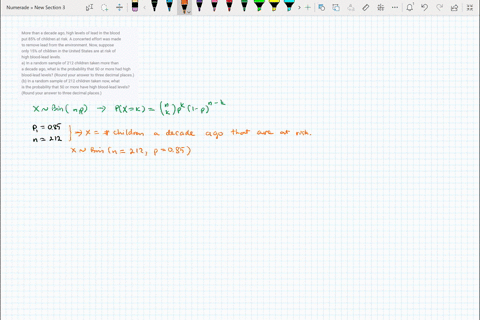 Numerade » New Section 3
More than a decade ago, high levels of lead in the blood
put 85% of children at risk. A concerted effort was made
to remove lead from the environment. Now, suppose
only 15% of children in the United States are at risk of
high blood-lead levels.
a) In a random sample of 212 children taken more than
a decade ago, what is the probability that 50 or more had high
blood-lead levels? (Round your answer to three decimal places.)
(b) In a random sample of 212 children taken now, what
is the probability that 50 or more have high blood-lead levels?
(Round your answer to three decimal places.)
X ~ Bin( n p) → P(X=k) = (n k) p^k (1-p)^n-k
P₁ = 0.85
n = 212
→ X = # children a decade ago that are at risk.
X ~ Bin (n = 212, p = 0.85)